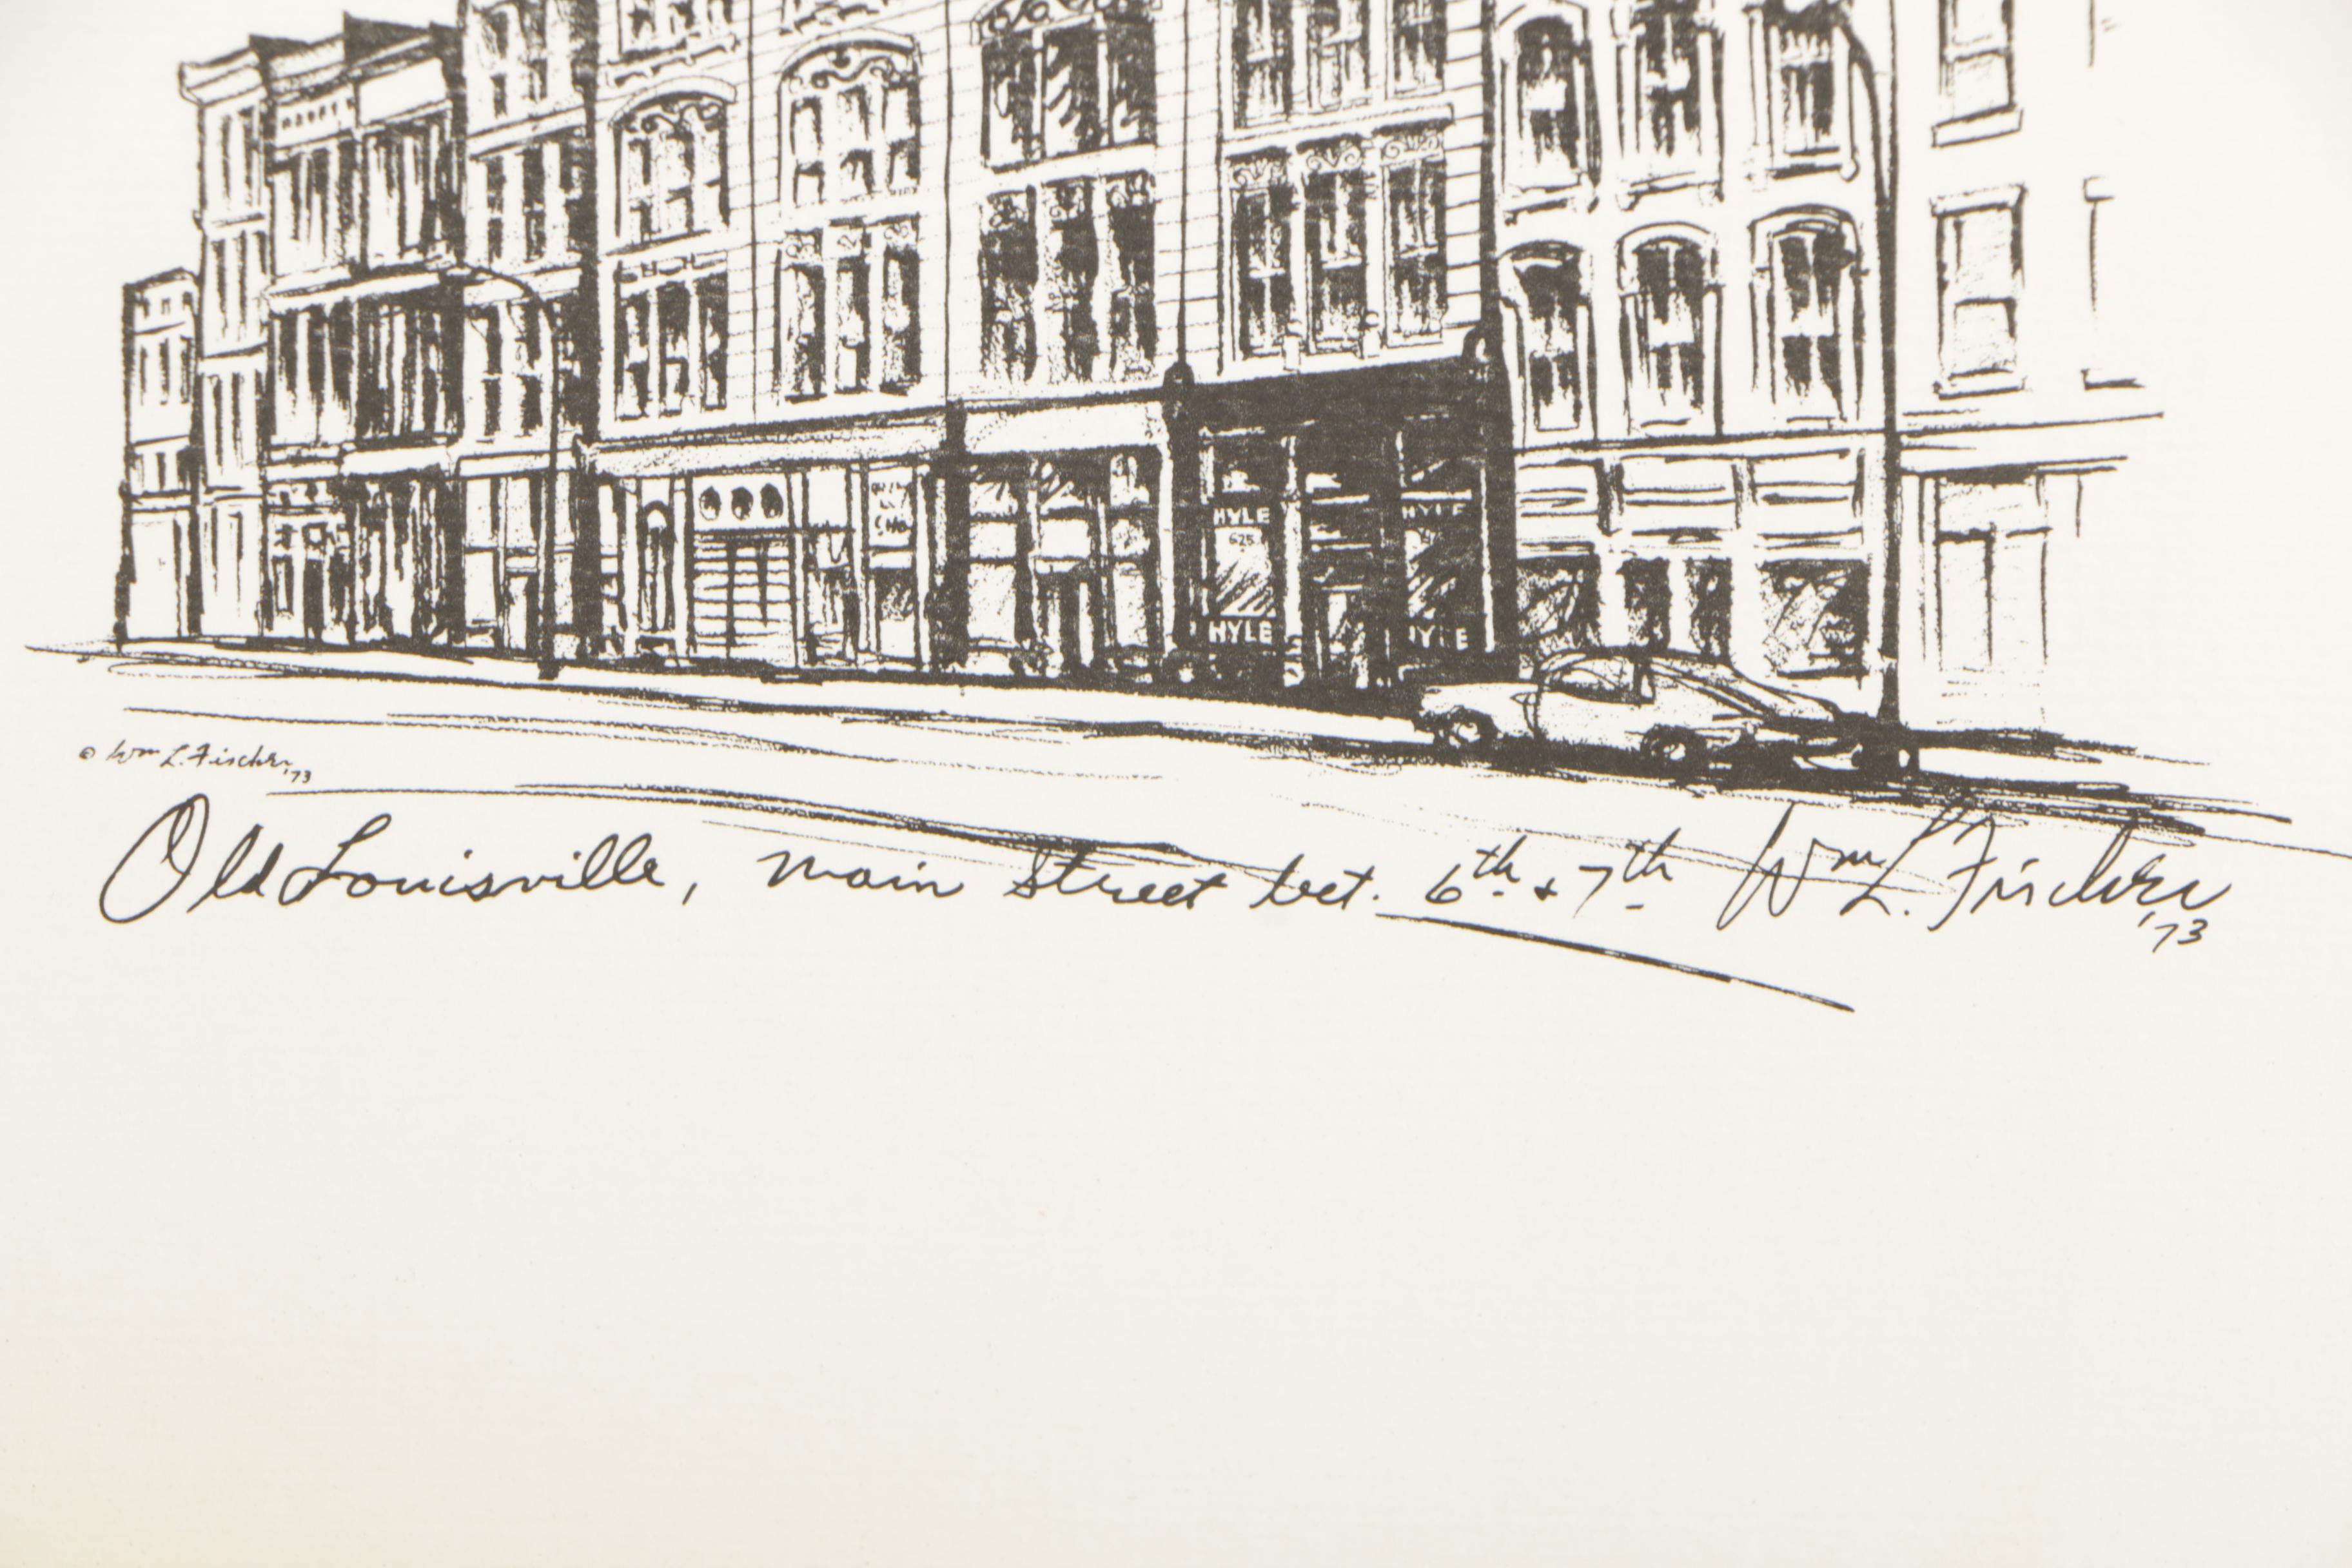 HYLE HYLE
625
HYLE HYLE
© Wm L. Fischer '73
Old Louisville, Main Street bet. 6th & 7th Wm L. Fischer '73